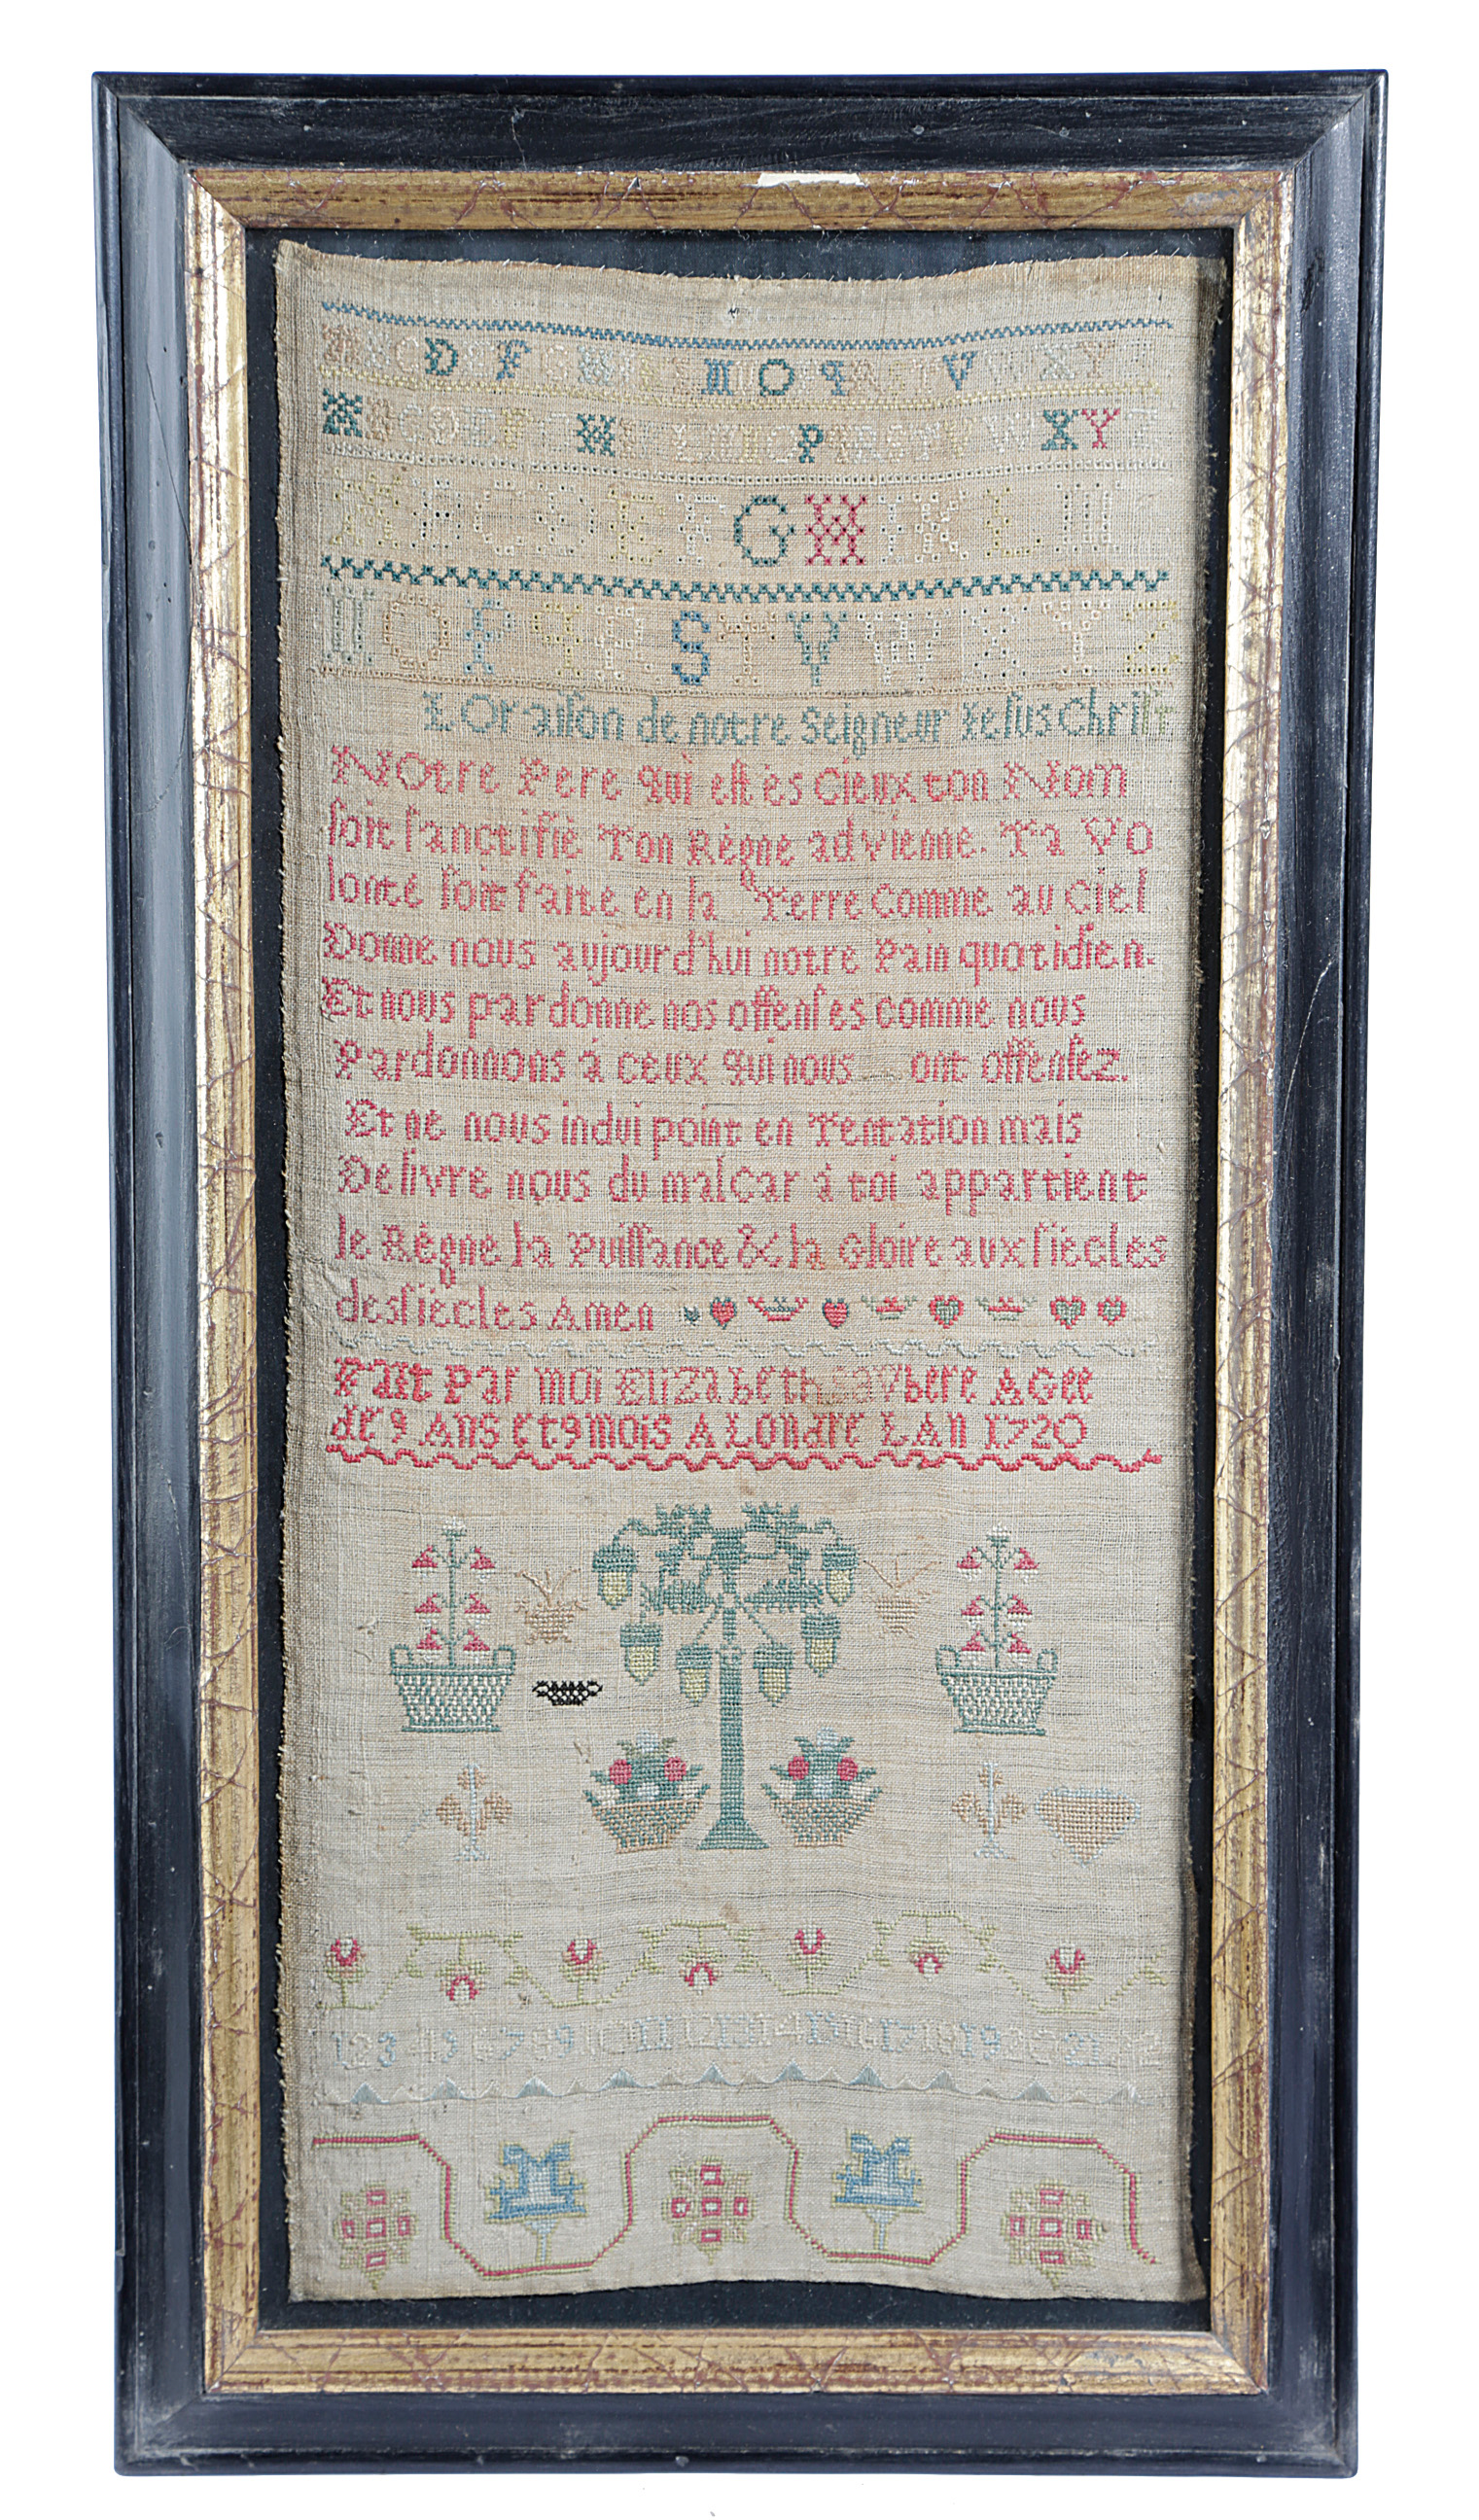 A B C D E F G H I K L M N O P Q R S T V W X Y
A B C D E F G H I K L M N O P Q R S T V W X Y Z
A B C D E F G H I K L M
N O P Q R S T V W X Y Z
L Oraiſon de notre Seigneur Jeſus Chriſt
NOtre Pere qui eſt ès Cieux ton Nom
ſoit ſanctifiè Ton Règne advienne. Ta Vo
lonté ſoit faite en la Terre Comme au Ciel
Donne nous aujourd'hui notre Pain quotidien.
Et nous pardonne nos offenſes comme nous
Pardonnons á ceux qui nous ont offenſez.
Et ne nous indui point en Tentation mais
Delivre nous du mal Car á toi appartient
le Règne la Puiſſance & la Gloire aux ſiècles
des ſiècles Amen
Fait Par MOi EliZabeth SaVbere AGee
de 9 ANS et 9 mois A LONdre LAn 1720
1 2 3 4 5 6 7 8 9 10 11 12 13 14 15 16 17 18 19 20 21 22